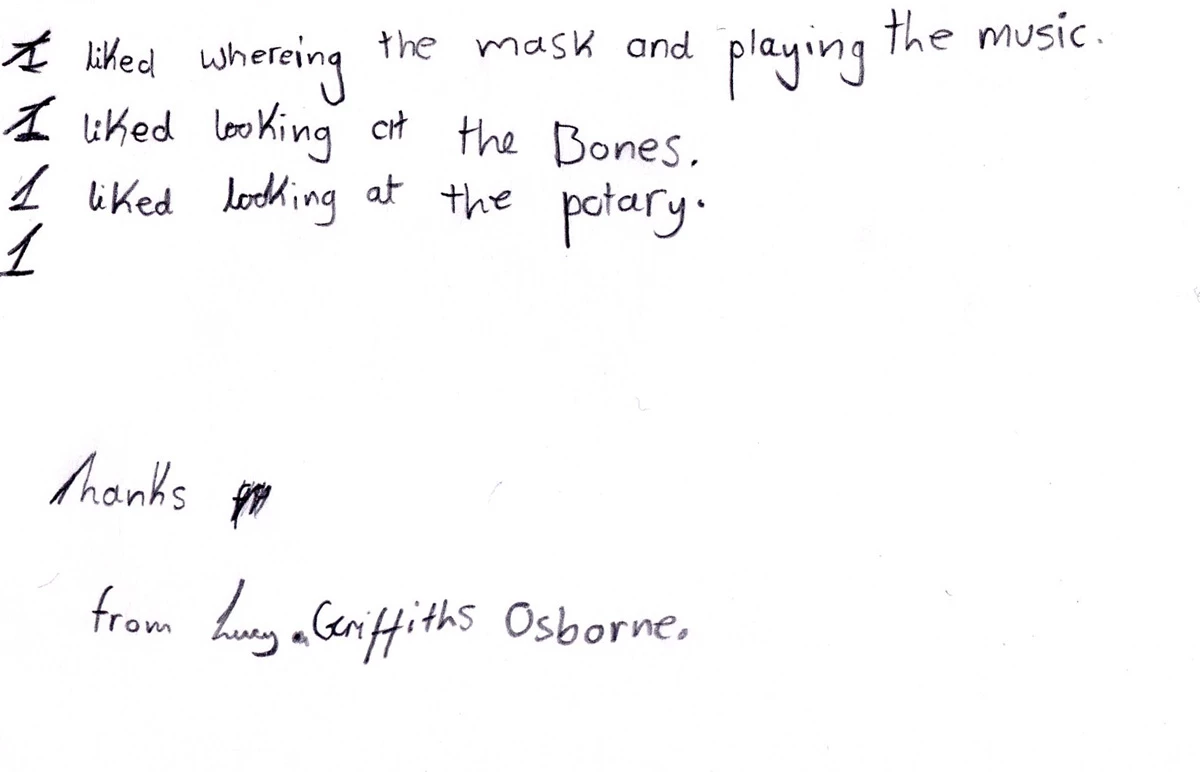 I liked whereing the mask and playing the music.
I liked looking at the Bones.
I liked looking at the potary.
I
Thanks
from Lucy Griffiths Osborne.